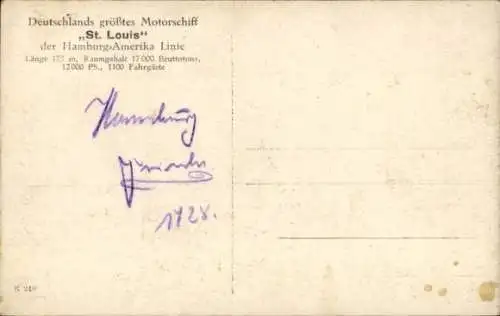 Deutschlands größtes Motorschiff
„St. Louis"
der Hamburg-Amerika Linie
Länge 175 m, Raumgehalt 17000 Bruttotons,
12000 PS., 1100 Fahrgäste
Hamburg
1928.